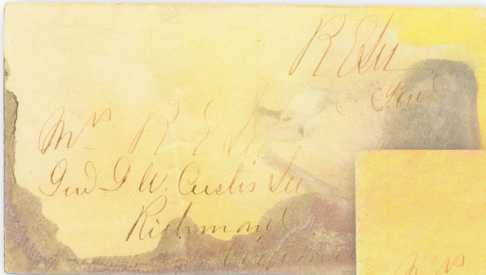 R E Lee
Genl
Mrs R E Lee
Genl G W. Custis Lee
Richmond
Virginia